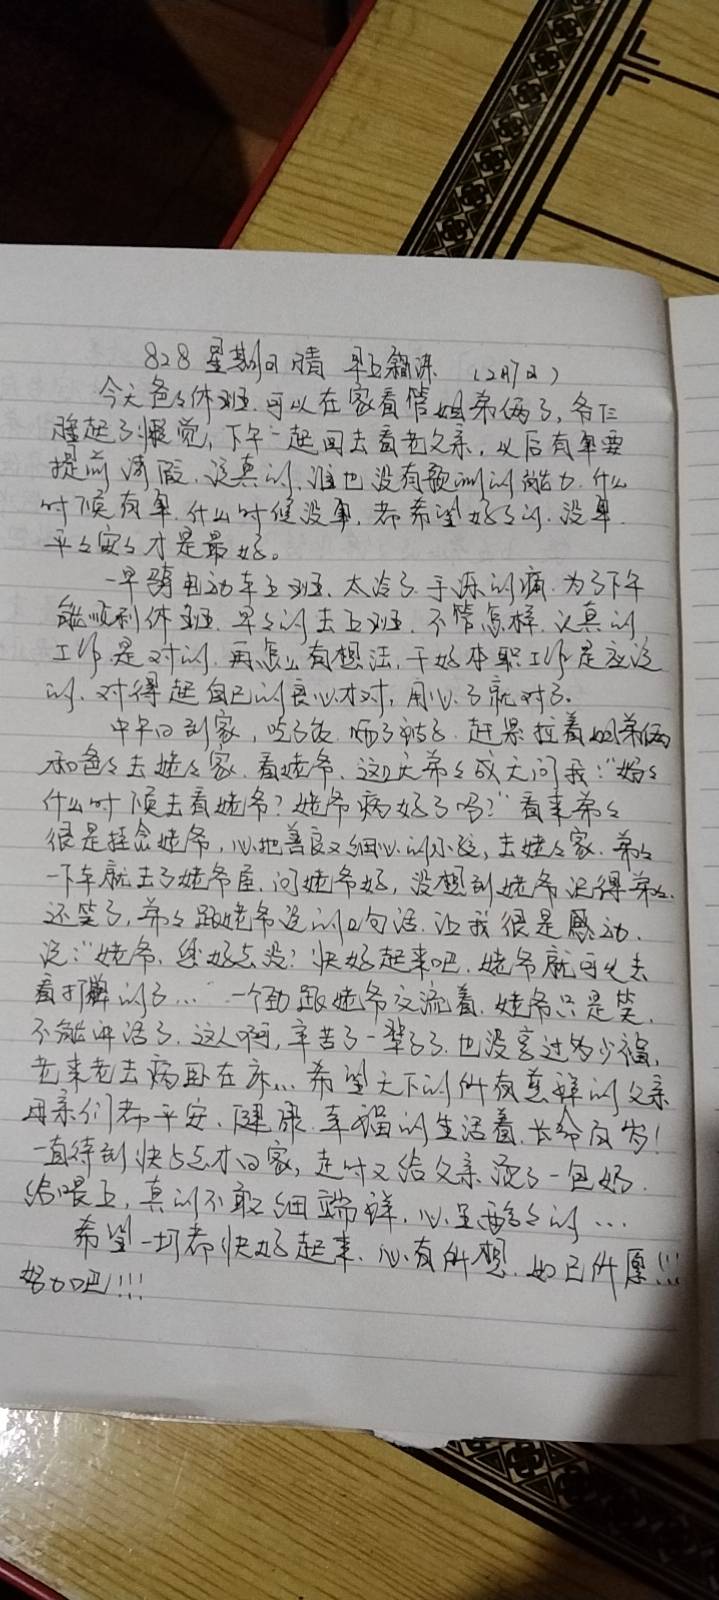 828 星期日 晴 早上霜冻 (2月7日)
今天爸爸休班.可以在家看管姐弟俩了,各仨
睡起了懒觉,下午一起回去看老父亲,以后有事要
提前请假.说真的.谁也没有预测的能力.什么
时候有事.什么时候没事.都希望好好的.没事.
平平安安才是最好。
一早骑电动车上班.太冷了.手冻的痛.为了下午
能顺利休班.早早的去上班.不管怎样.认真的
工作是对的.再怎么有想法,干好本职工作是应该
的.对得起自己的良心才对,用心了就对了.
中午回到家,吃了饭.晒了被子.赶紧拉着姐弟俩
和爸爸去姥姥家.看姥爷.这几天弟弟成天问我:“妈妈
什么时候去看姥爷?姥爷病好了吗?”看来弟弟
很是挂念姥爷,心地善良又细心的小孩,去姥姥家.弟弟
一下车就去了姥爷屋.问姥爷好,没想到姥爷记得弟弟.
还笑了,弟弟跟姥爷说的几句话.让我很是感动.
说:“姥爷,您好点没?快好起来吧.姥爷就可以去
看打牌的了... 一个劲跟姥爷交流着.姥爷只是笑.
不能讲话了.这人啊,辛苦了一辈子了.也没享过多少福,
老来老去病卧在床...希望天下的所有慈祥的父亲
母亲们都平安.健康.幸福的生活着.长命百岁!
一直待到快5点才回家,走时又给父亲冲了一包奶.
给喂上,真的不敢细端详.心里酸酸的...
希望一切都快好起来.心有所想.如己所愿!!!
努力吧!!!